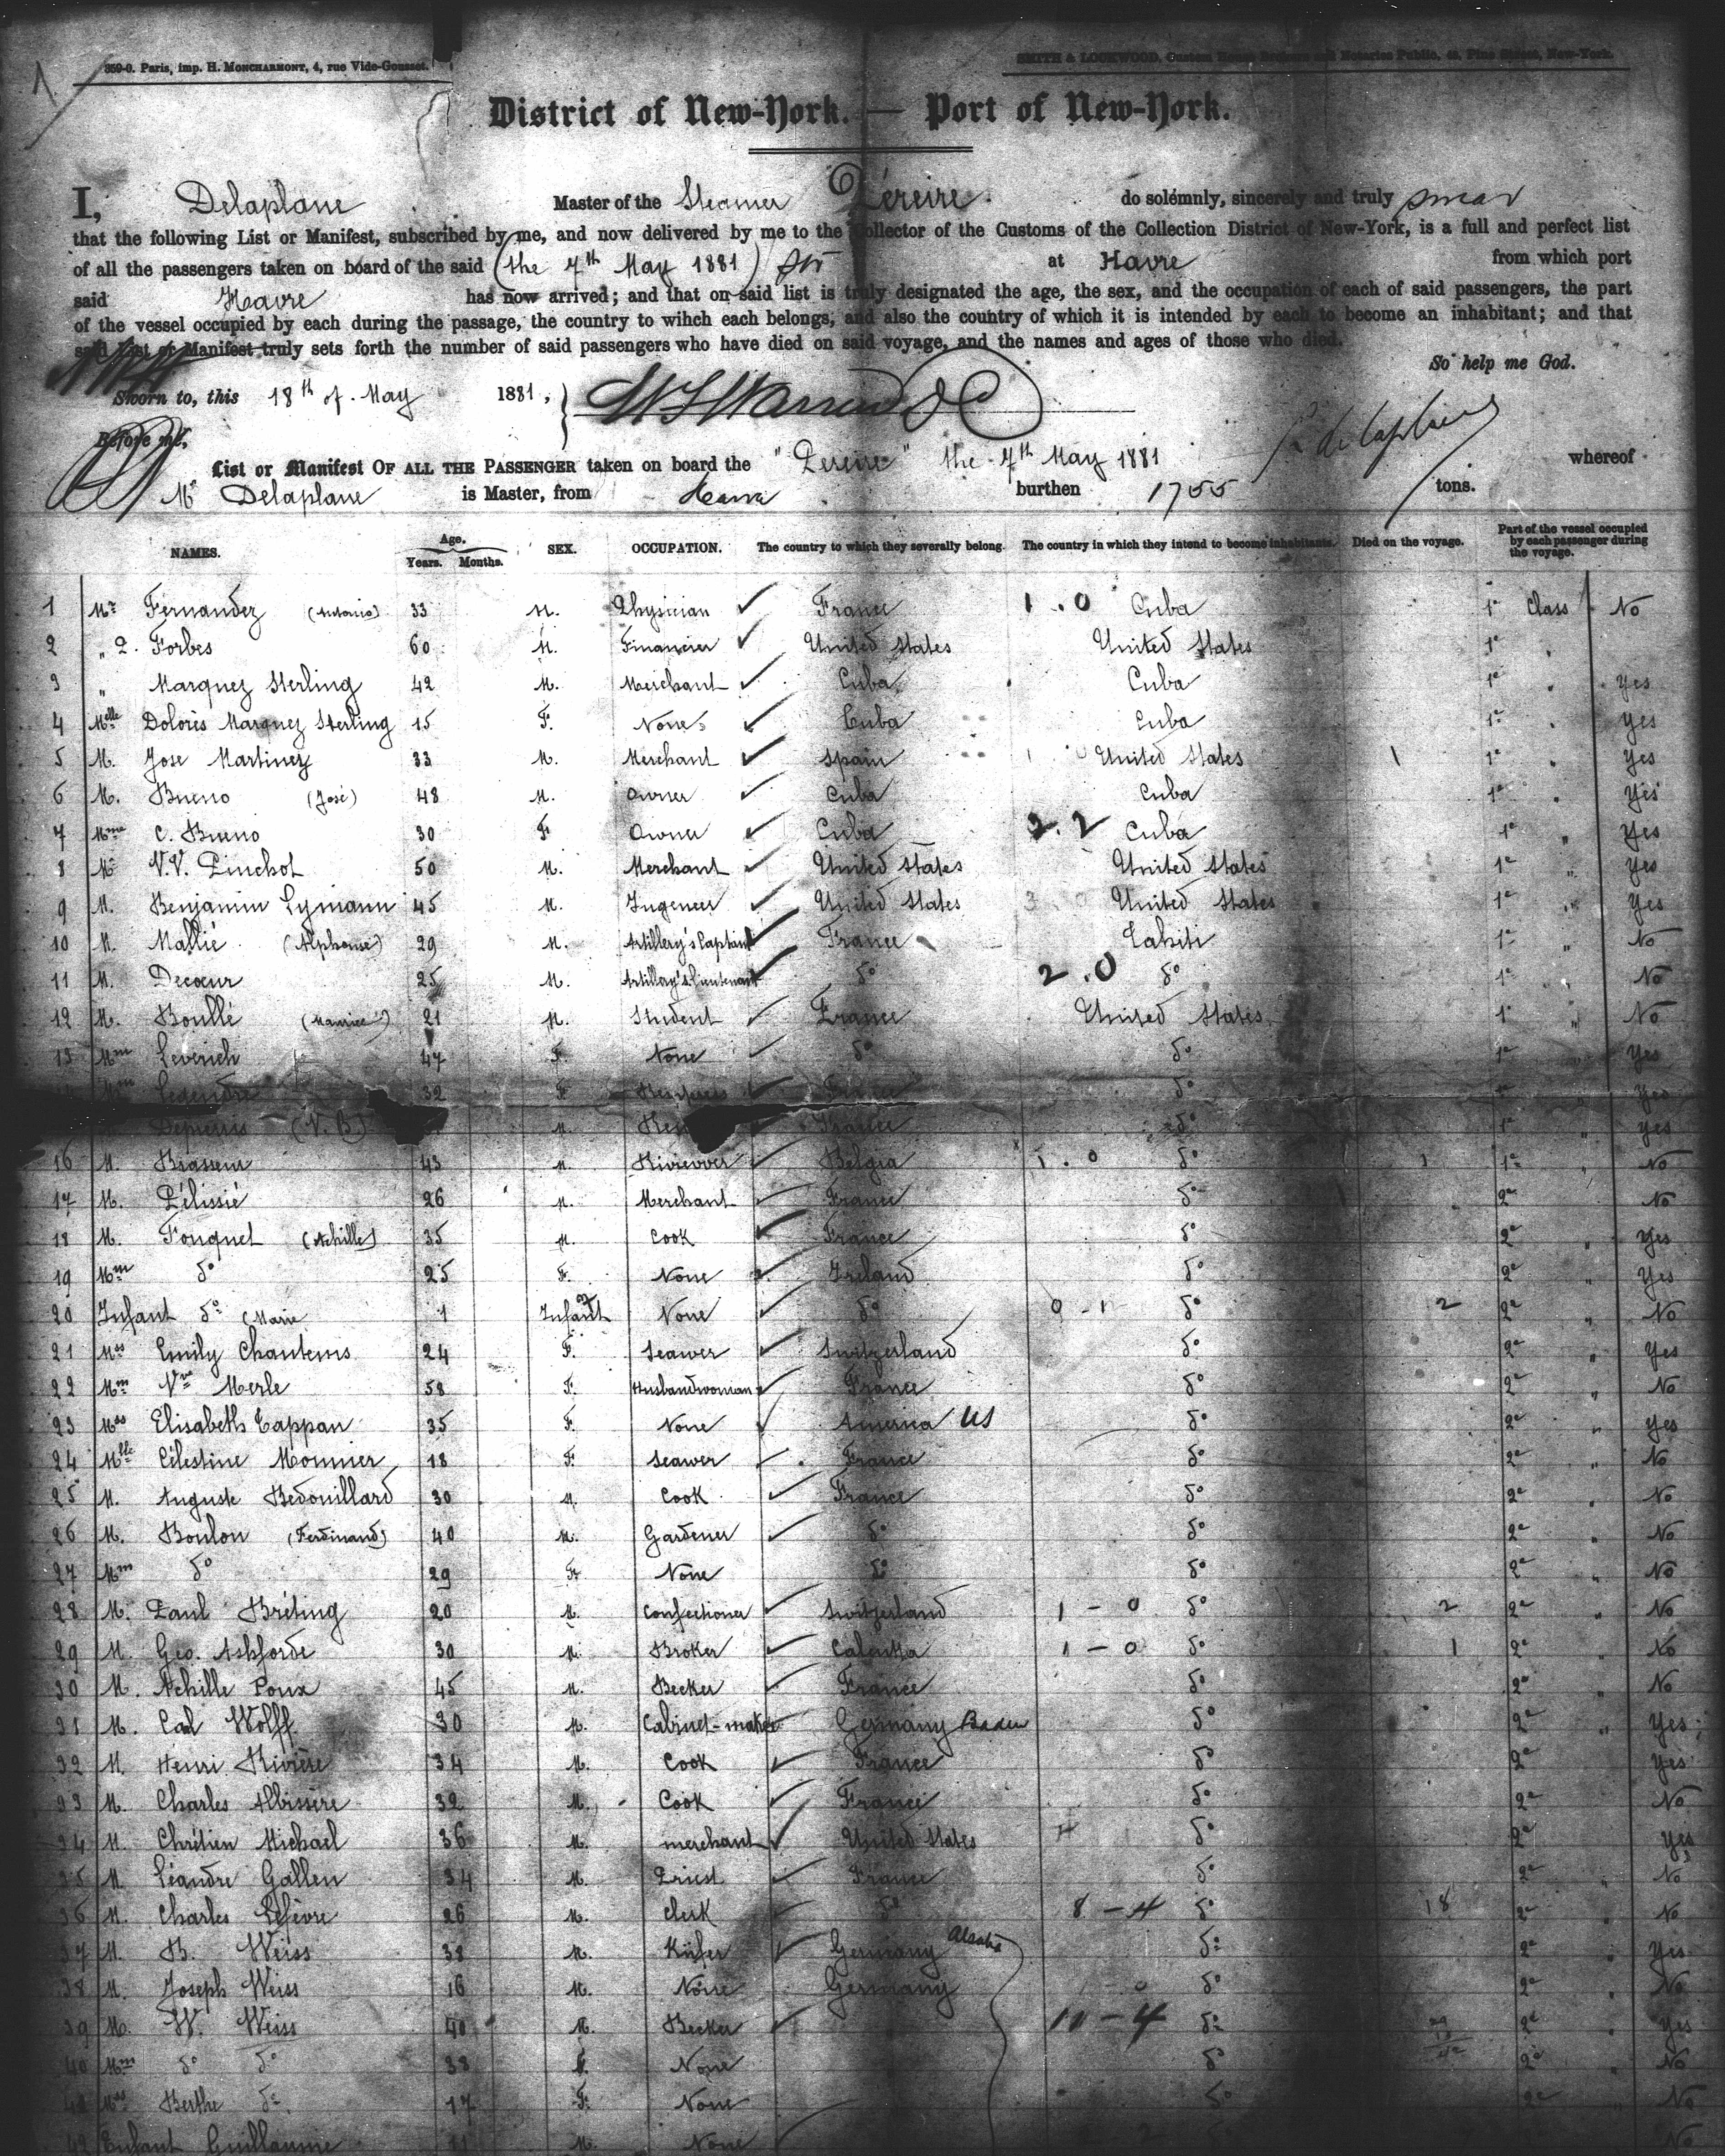 359-0. Paris, imp. H. MONCHARMONT, 4, rue Vide-Gousset.
SMITH & LOCKWOOD, Custom House Brokers and Notaries Public, 48, Pine Street, New-York.
District of New-York. — Port of New-York.
I, Delaplane Master of the Steamer Péreire do solemnly, sincerely and truly swear
that the following List or Manifest, subscribed by me, and now delivered by me to the Collector of the Customs of the Collection District of New-York, is a full and perfect list
of all the passengers taken on board of the said (the 7th May 1881) at Havre from which port
said Havre has now arrived; and that on said list is truly designated the age, the sex, and the occupation of each of said passengers, the part
of the vessel occupied by each during the passage, the country to wihch each belongs, and also the country of which it is intended by each to become an inhabitant; and that
said List or Manifest truly sets forth the number of said passengers who have died on said voyage, and the names and ages of those who died.
So help me God.
Sworn to, this 18th of May 1881,
Before me,
List or Manifest OF ALL THE PASSENGER taken on board the "Pereire" the 7th May 1881 whereof
Mr Delaplane is Master, from Havre burthen 1755 tons.
NAMES. Age. Years. Months. SEX. OCCUPATION. The country to which they severally belong. The country in which they intend to become inhabitants. Died on the voyage. Part of the vessel occupied by each passenger during the voyage.
1 Mr Fernandez (Antonio) 33 M. Physician France 1.0 Cuba 1e Class No
2 " P. Forbes 60 M. Financier United States United States 1e "
3 " Marquez Sterling 42 M. Merchant Cuba Cuba 1e " Yes
4 Melle Dolorès Marquez Sterling 15 F. None Cuba Cuba 1e " Yes
5 M. Jose Martinez 33 M. Merchant Spain United States 1 1e " Yes
6 M. Bueno (José) 48 M. Owner Cuba Cuba 1e " Yes
7 Mme C. Bueno 30 F. Owner Cuba 2.2 Cuba 1e " Yes
8 Mr V.V. Pinchot 50 M. Merchant United States United States 1e " Yes
9 M. Benjamin Lymann 45 M. Ingeneer United States 3 0 United States 1e " Yes
10 M. Mallié (Alphonse) 29 M. Artillery's Captain France Tahiti 1e " No
11 M. Decœur 25 M. Artillery's lieutenant do 2.0 do 1e No
12 M. Boullé (Maurice) 21 M. Student France United States 1e " No
13 Mm Leverich 47 F. None do do 1e Yes
Mm Legendre 32 F. France do 1e Yes
Depierris (V. B) M. France do 1e " Yes
16 M. Brasseur 43 M. Belgia 1.0 do 1 1e " No
17 M. Pélissié 26 M. Merchant France do 2e No
18 M. Fouquet (Achille) 35 M. Cook France do 2e " Yes
19 Mm do 25 F. None Ireland do 2e " Yes
20 Infant do (Marie 1 Infant None do 0-1 do 2 2e " No
21 Mss Emily Chautems 24 F. Seawer Switzerland do 2e " Yes
22 Mm Vve Merle 58 F. Husbandwoman France do 2e " No
23 Mss Elisabeth Tappan 35 F. None America US do 2e " Yes
24 Mlle Célestine Monnier 18 F. Seawer France do 2e " No
25 M. Auguste Bedouillard 30 M. Cook France do 2e " No
26 M. Boulon (Ferdinand) 40 M. Gardener do do 2e " No
27 Mm do 29 F. None do do 2e " No
28 M. Paul Bréting 20 M. Confectioner Switzerland 1-0 do 2 2e " No
29 M. Geo. Ashforde 30 M. Broker Calcutta 1-0 do 1 2e " No
30 M. Achille Poux 45 M. Becker France do 2e " No
31 M. Carl Wolff 30 M. Cabinet-maker Germany Baden do 2e " Yes
32 M. Henri Rivière 34 M. Cook France do 2e Yes
33 M. Charles Albissère 32 M. Cook France do 2e " No
34 M. Chrétien Michael 36 M. merchant United States do 2e " Yes
35 M. Léandre Gallen 34 M. Priest France do 2e " No
36 M. Charles Lefèvre 26 M. Clerk do 8-4 do 18 2e " No
37 M. B. Weiss 38 M. Küfer Germany Alsatia do 2e " Yes
38 M. Joseph Weiss 16 M. None Germany do 2e " No
39 M. W. Weiss 40 M. Becker 11-4 do 2e " Yes
40 Mm do do 38 F. None do 2e " No
41 Mss Berthe do 17 F. None do 2e " No
42 Enfant Guillaume 11 M. None No